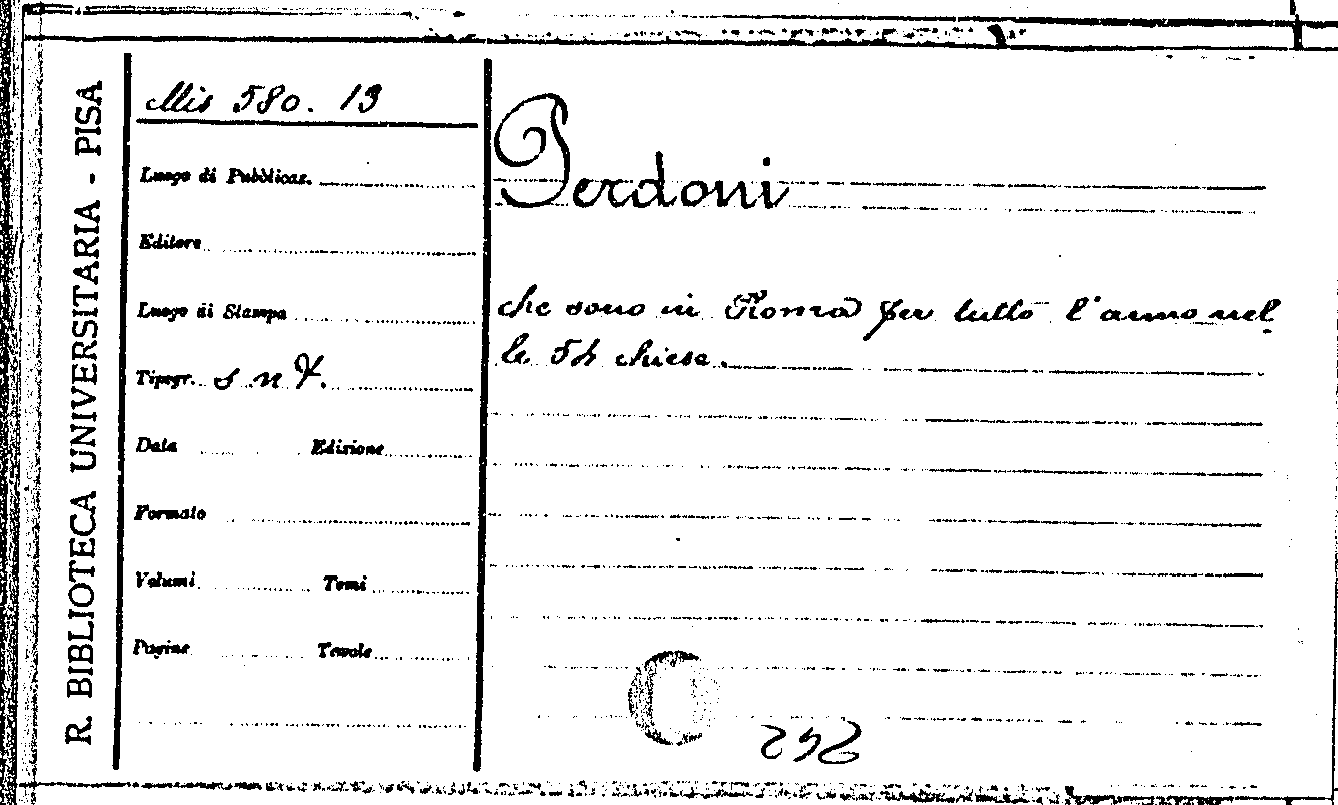 R. BIBLIOTECA UNIVERSITARIA - PISA
Mis 580. 13
Luogo di Pubblicaz.
Editore
Luogo di Stampa
Tipogr. s n t.
Data Edizione
Formato
Volumi Tomi
Pagine Tavole
Perdoni
che sono in Roma per tutto l'anno nel
le 54 chiese.
242